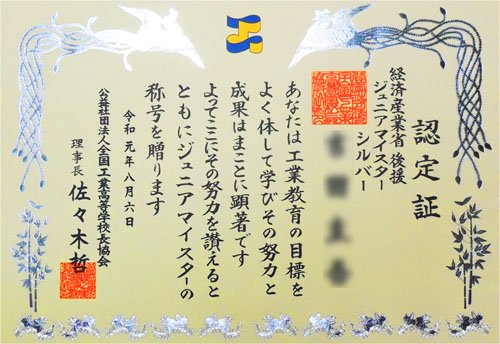 認定証
経済産業省 後援
ジュニアマイスター
シルバー
あなたは工業教育の目標を
よく体して学びその努力と
成果はまことに顕著です
よってここにその努力を讃えると
ともにジュニアマイスターの
称号を贈ります
令和元年八月六日
公益社団法人全国工業高等学校長協会
理事長 佐々木哲